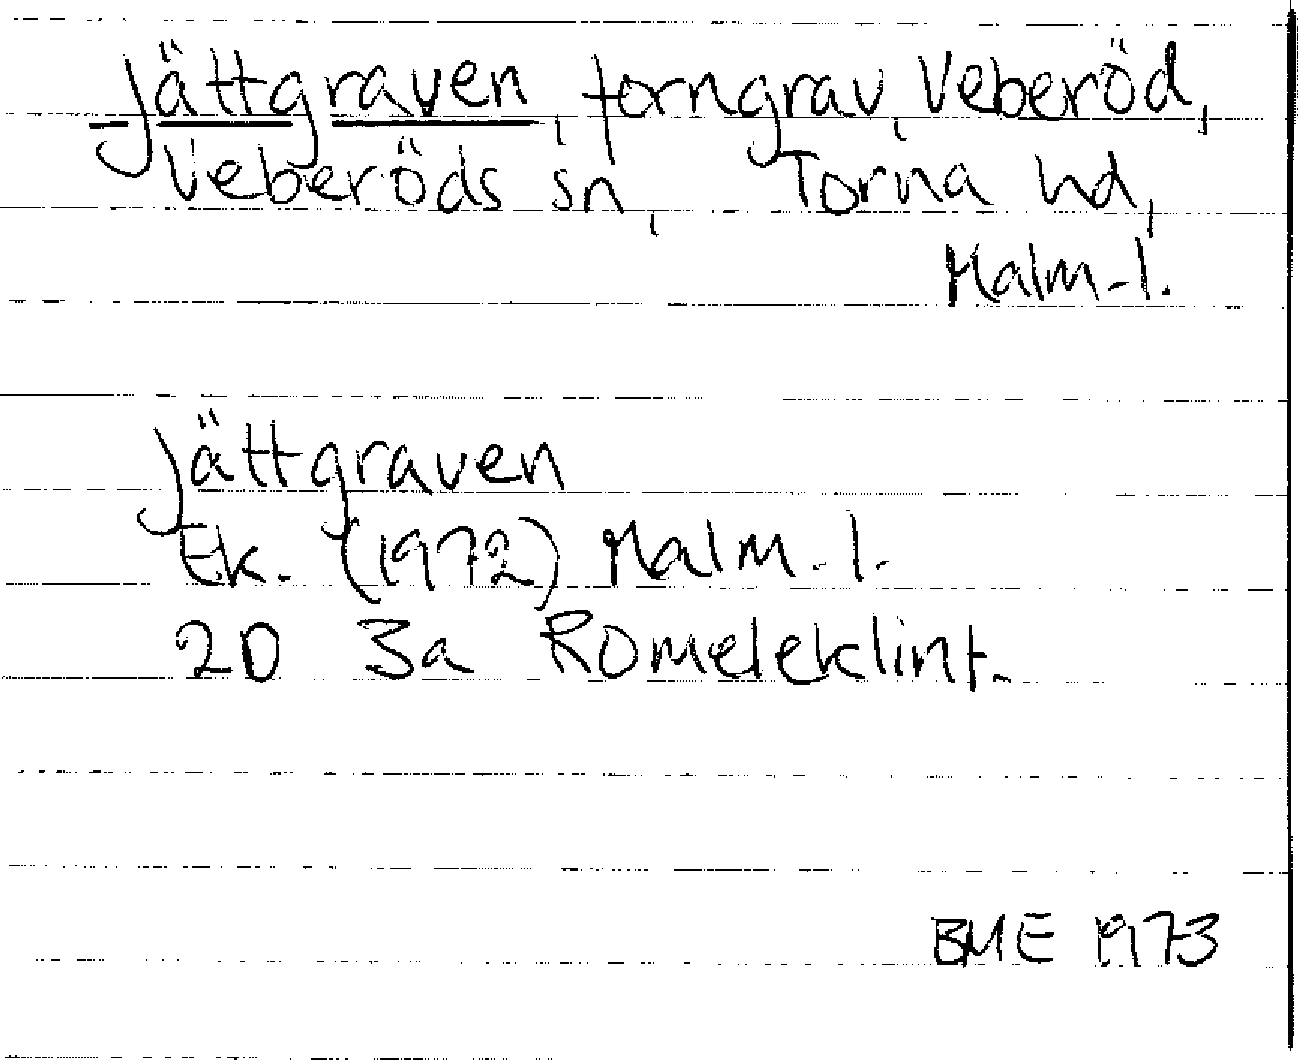 Jättgraven, forngrav, Veberöd,
Veberöds sn, Torna hd,
Malm-l.
Jättgraven
Ek. (1972) Malm.l.
2D 3a Romeleklint.
BME 1973